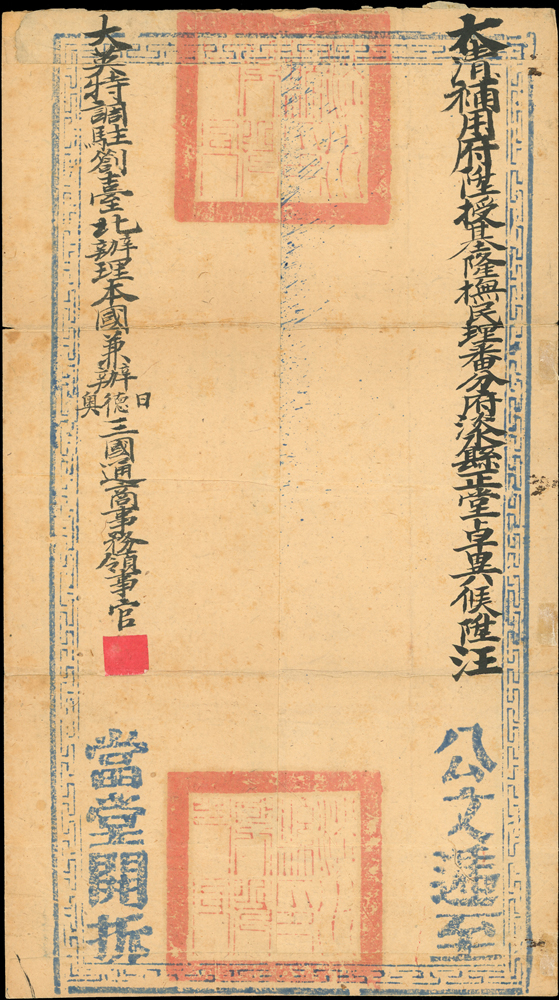 大清補用府陞授基隆撫民理番分府淡縣正堂卓異候陞汪
公文遞至
大英特調駐劄臺北辦理本國兼辦日德奧三國通商事務領事官
當堂開拆